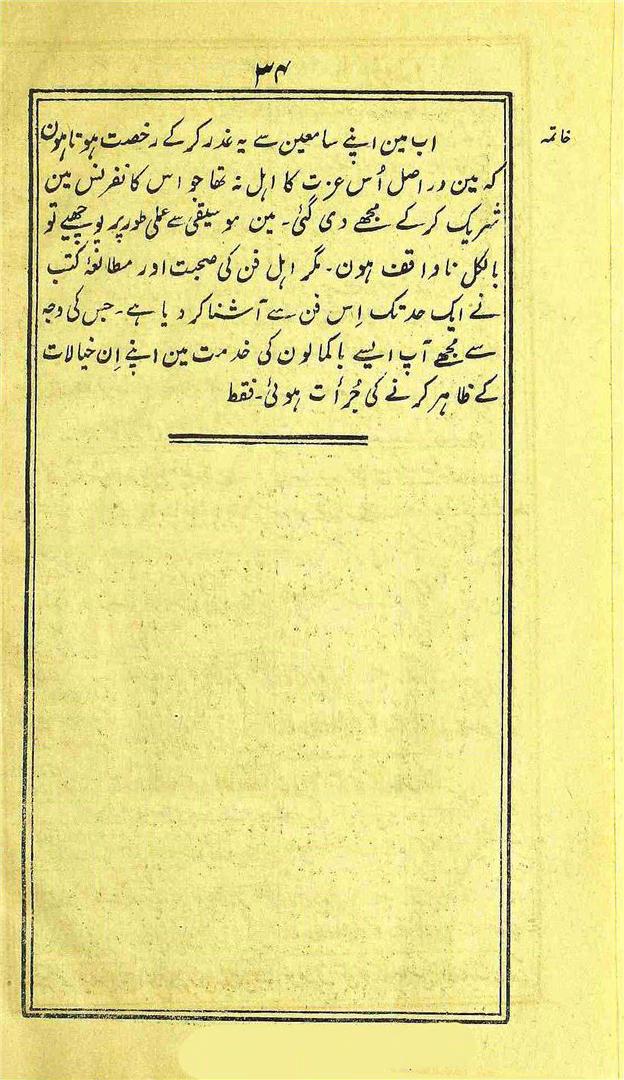 ۳۴
خاتمہ
اب مین اپنے سامعین سے یہ عذر کرکے رخصت ہوتا ہون
کہ مین در اصل اُس عزت کا اہل نہ تھا جو اس کانفرنس مین
شریک کرکے مجھے دی گئی۔ مین موسیقی سے عملی طور پر پوچھیے تو
بالکل ناواقف ہون۔ مگر اہل فن کی صحبت اور مطالعۂ کتب
نے ایک حد تک اِس فن سے آشنا کر دیا ہے۔ جس کی وجہ
سے مجھے آپ ایسے باکمالون کی خدمت مین اپنے اِن خیالات
کے ظاہر کرنے کی جُرأت ہوئی۔ فقط